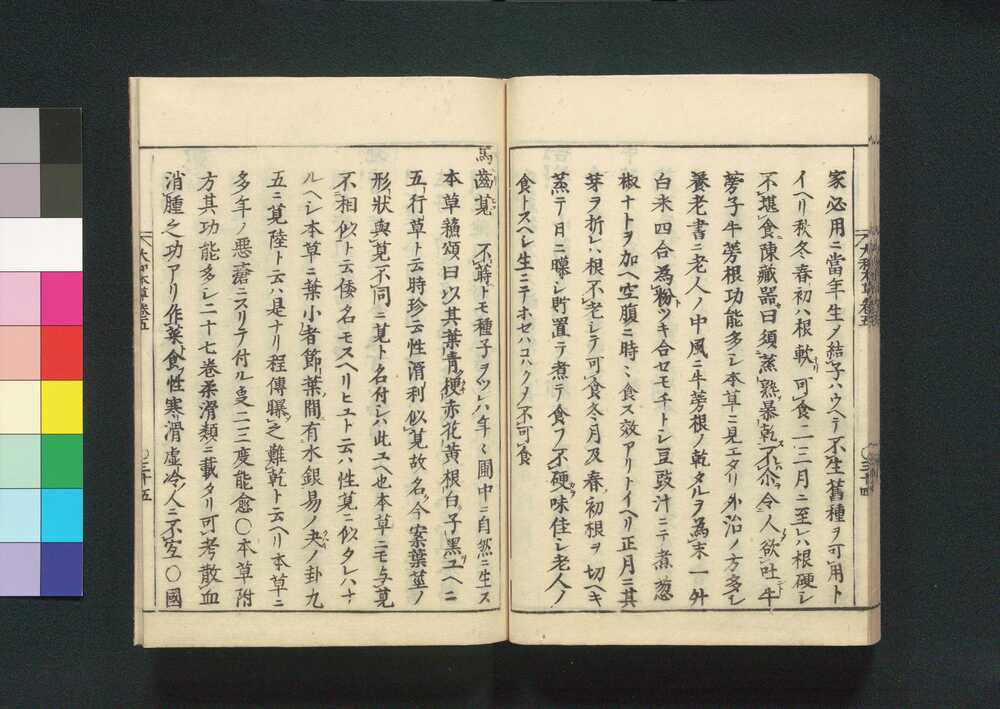 家必用ニ當年生ノ結子ハウヘテ不生舊種ヲ可用ト
イヘリ秋冬春初ハ根軟可食二三月ニ至レハ根硬シ
不堪食陳藏器曰須蒸熟暴乾不尓令人欲吐牛
蒡子牛蒡根功能多シ本草ニ見エタリ外治ノ方多シ
養老書ニ老人ノ中風ニ牛蒡根ノ乾タルヲ為末一升
白米四合為粉ツキ合セモチトシ豆豉汁ニテ煮葱
椒ナトヲ加ヘ空腹ニ時〻食ス效アリトイヘリ正月ニ其
芽ヲ折レハ根不老シテ可食冬月及春初根ヲ切ヘキ
蒸テ日ニ曝シ貯置テ煮テ食フ不硬味佳シ老人ノ
食トスヘシ生ニテホセハコハクメ不可食
大和本草卷五
○三十四
馬齒莧 不蒔トモ種子ヲツレハ年〻圃中ニ自然ニ生ス
本草蘓頌曰以其葉青梗赤花黄根白子黒ユヘニ
五行草ト云時珍云性滑利似莧故名今案葉莖ノ
形狀與莧不同ニ莧ト名付シハ此ユヘ也本草ニモ与莧
不相似ト云倭名モスヘリヒユト云ハ性莧ニ似タレハナ
ルヘシ本草ニ葉小者節葉間有水銀易ノ夬ノ卦九
五ニ莧陸ト云ハ是ナリ程傳曝之難乾ト云ヘリ本草ニ
多年ノ悪瘡ニスリテ付ル叓二三度能愈○本草附
方其功能多シ二十七巻柔滑類ニ載タリ可考散血
消腫之功アリ作菜食性寒滑虚冷人ニ不宜○國
大和本草卷五
○三十五